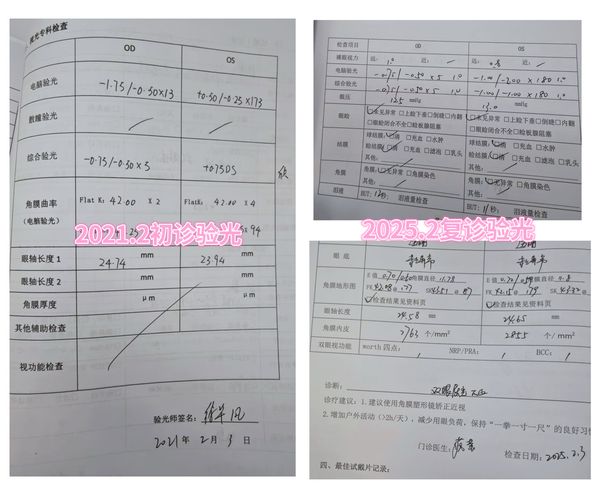 视光专科检查
OD OS
电脑验光 -1.75/-0.50×13 +0.50/-0.25×173
散瞳验光
综合验光 -0.75/-0.50×3 +0.75DS
角膜曲率
(电脑验光)
Flat K: 42.00 × 2 FlatK: 42.00 × 4
× 94
2021.2初诊验光
眼轴长度 1 24.74 mm 23.94 mm
眼轴长度 2 mm mm
角膜厚度 μm μm
其他辅助检查
视功能检查
验光师签名:
2021 年 2 月 3 日
检查项目 OD OS
裸眼视力 远: 1.0 近: 远: 0.8 近:
电脑验光 -0.75/-0.50×5 1.0 -1.00/-2.00×180 1.0
综合验光 -0.75/-0.50×5 1.0 -1.00/-1.00×180 1.0
眼压 12.5 mmHg 13.0 mmHg
眼睑 未见异常 □上睑下垂□倒睫□内翻 □眼睑闭合不全□睑板腺阻塞
未见异常 □上睑下垂□倒睫□内翻 □眼睑闭合不全□睑板腺阻塞
结膜 球结膜: 清 □充血 □水肿 球结膜: 清 □充血 □水肿
睑结膜: 清 □充血 □滤泡 □乳头 睑结膜: 清 □充血 □滤泡 □乳头
其他: 其他:
角膜 角膜: 无异常 □角膜染色 角膜: 无异常 □角膜染色
其他: 其他:
泪液 BUT: 12秒; 泪液量检查 BUT: 11秒; 泪液量检查
2025.2复诊验光
眼底
角膜地形图 E 值 0.70/0.60 角膜直径 11.78 E 值 角膜直径
检查结果见资料页 检查结果见资料页
眼轴长度 24.58 mm 24.65 mm
角膜内皮 2763 个/mm² 2855 个/mm²
双眼视功能 worth 四点: NRP/PRA: BCC:
诊断: 双眼屈光不正
诊疗建议: 1.建议使用角膜塑形镜矫正近视
2.增加户外活动(≥2h/天),减少用眼负荷,保持“一拳一寸一尺”的良好习惯
门诊医生: 检查日期: 2025.2.3
四、最佳试戴片记录: